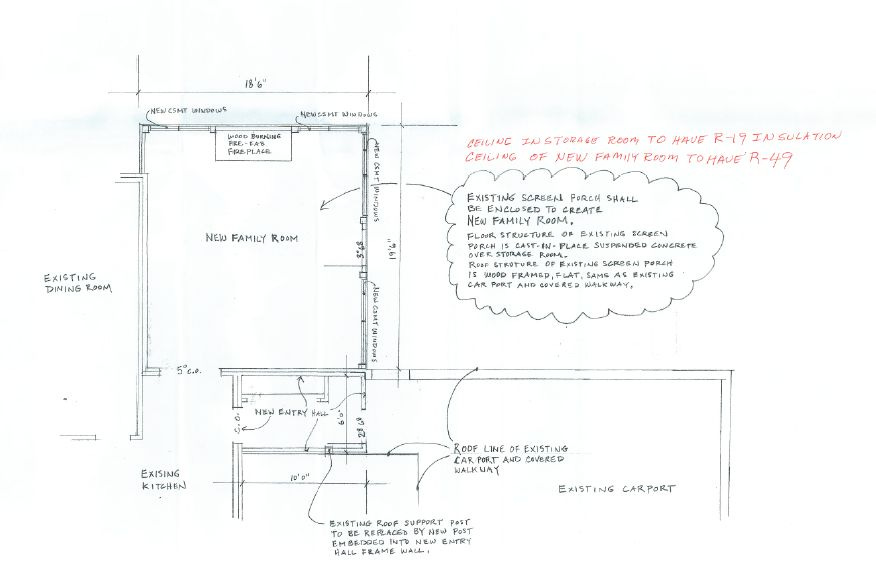 18'6"
NEW CSMT WINDOWS
NEW CSMT WINDOWS
WOOD BURNING
PRE-FAB
FIREPLACE
NEW CSMT WINDOWS
CEILING IN STORAGE ROOM TO HAVE R-19 INSULATION
CEILING OF NEW FAMILY ROOM TO HAVE R-49
EXISTING SCREEN PORCH SHALL
BE ENCLOSED TO CREATE
NEW FAMILY ROOM.
FLOOR STRUCTURE OF EXISTING SCREEN
PORCH IS CAST-IN-PLACE SUSPENDED CONCRETE
OVER STORAGE ROOM.
ROOF STRUTURE OF EXISTING SCREEN PORCH
IS WOOD FRAMED, FLAT, SAME AS EXISTING
CAR PORT AND COVERED WALKWAY.
NEW FAMILY ROOM
EXISTING
DINING ROOM
NEW CSMT WINDOWS
5° C.O.
NEW ENTRY HALL
6'0"
ROOF LINE OF EXISTING
CAR PORT AND COVERED
WALKWAY
EXISING
KITCHEN
10'0"
EXISTING CARPORT
EXISTING ROOF SUPPORT POST
TO BE REPLACED BY NEW POST
EMBEDDED INTO NEW ENTRY
HALL FRAME WALL.